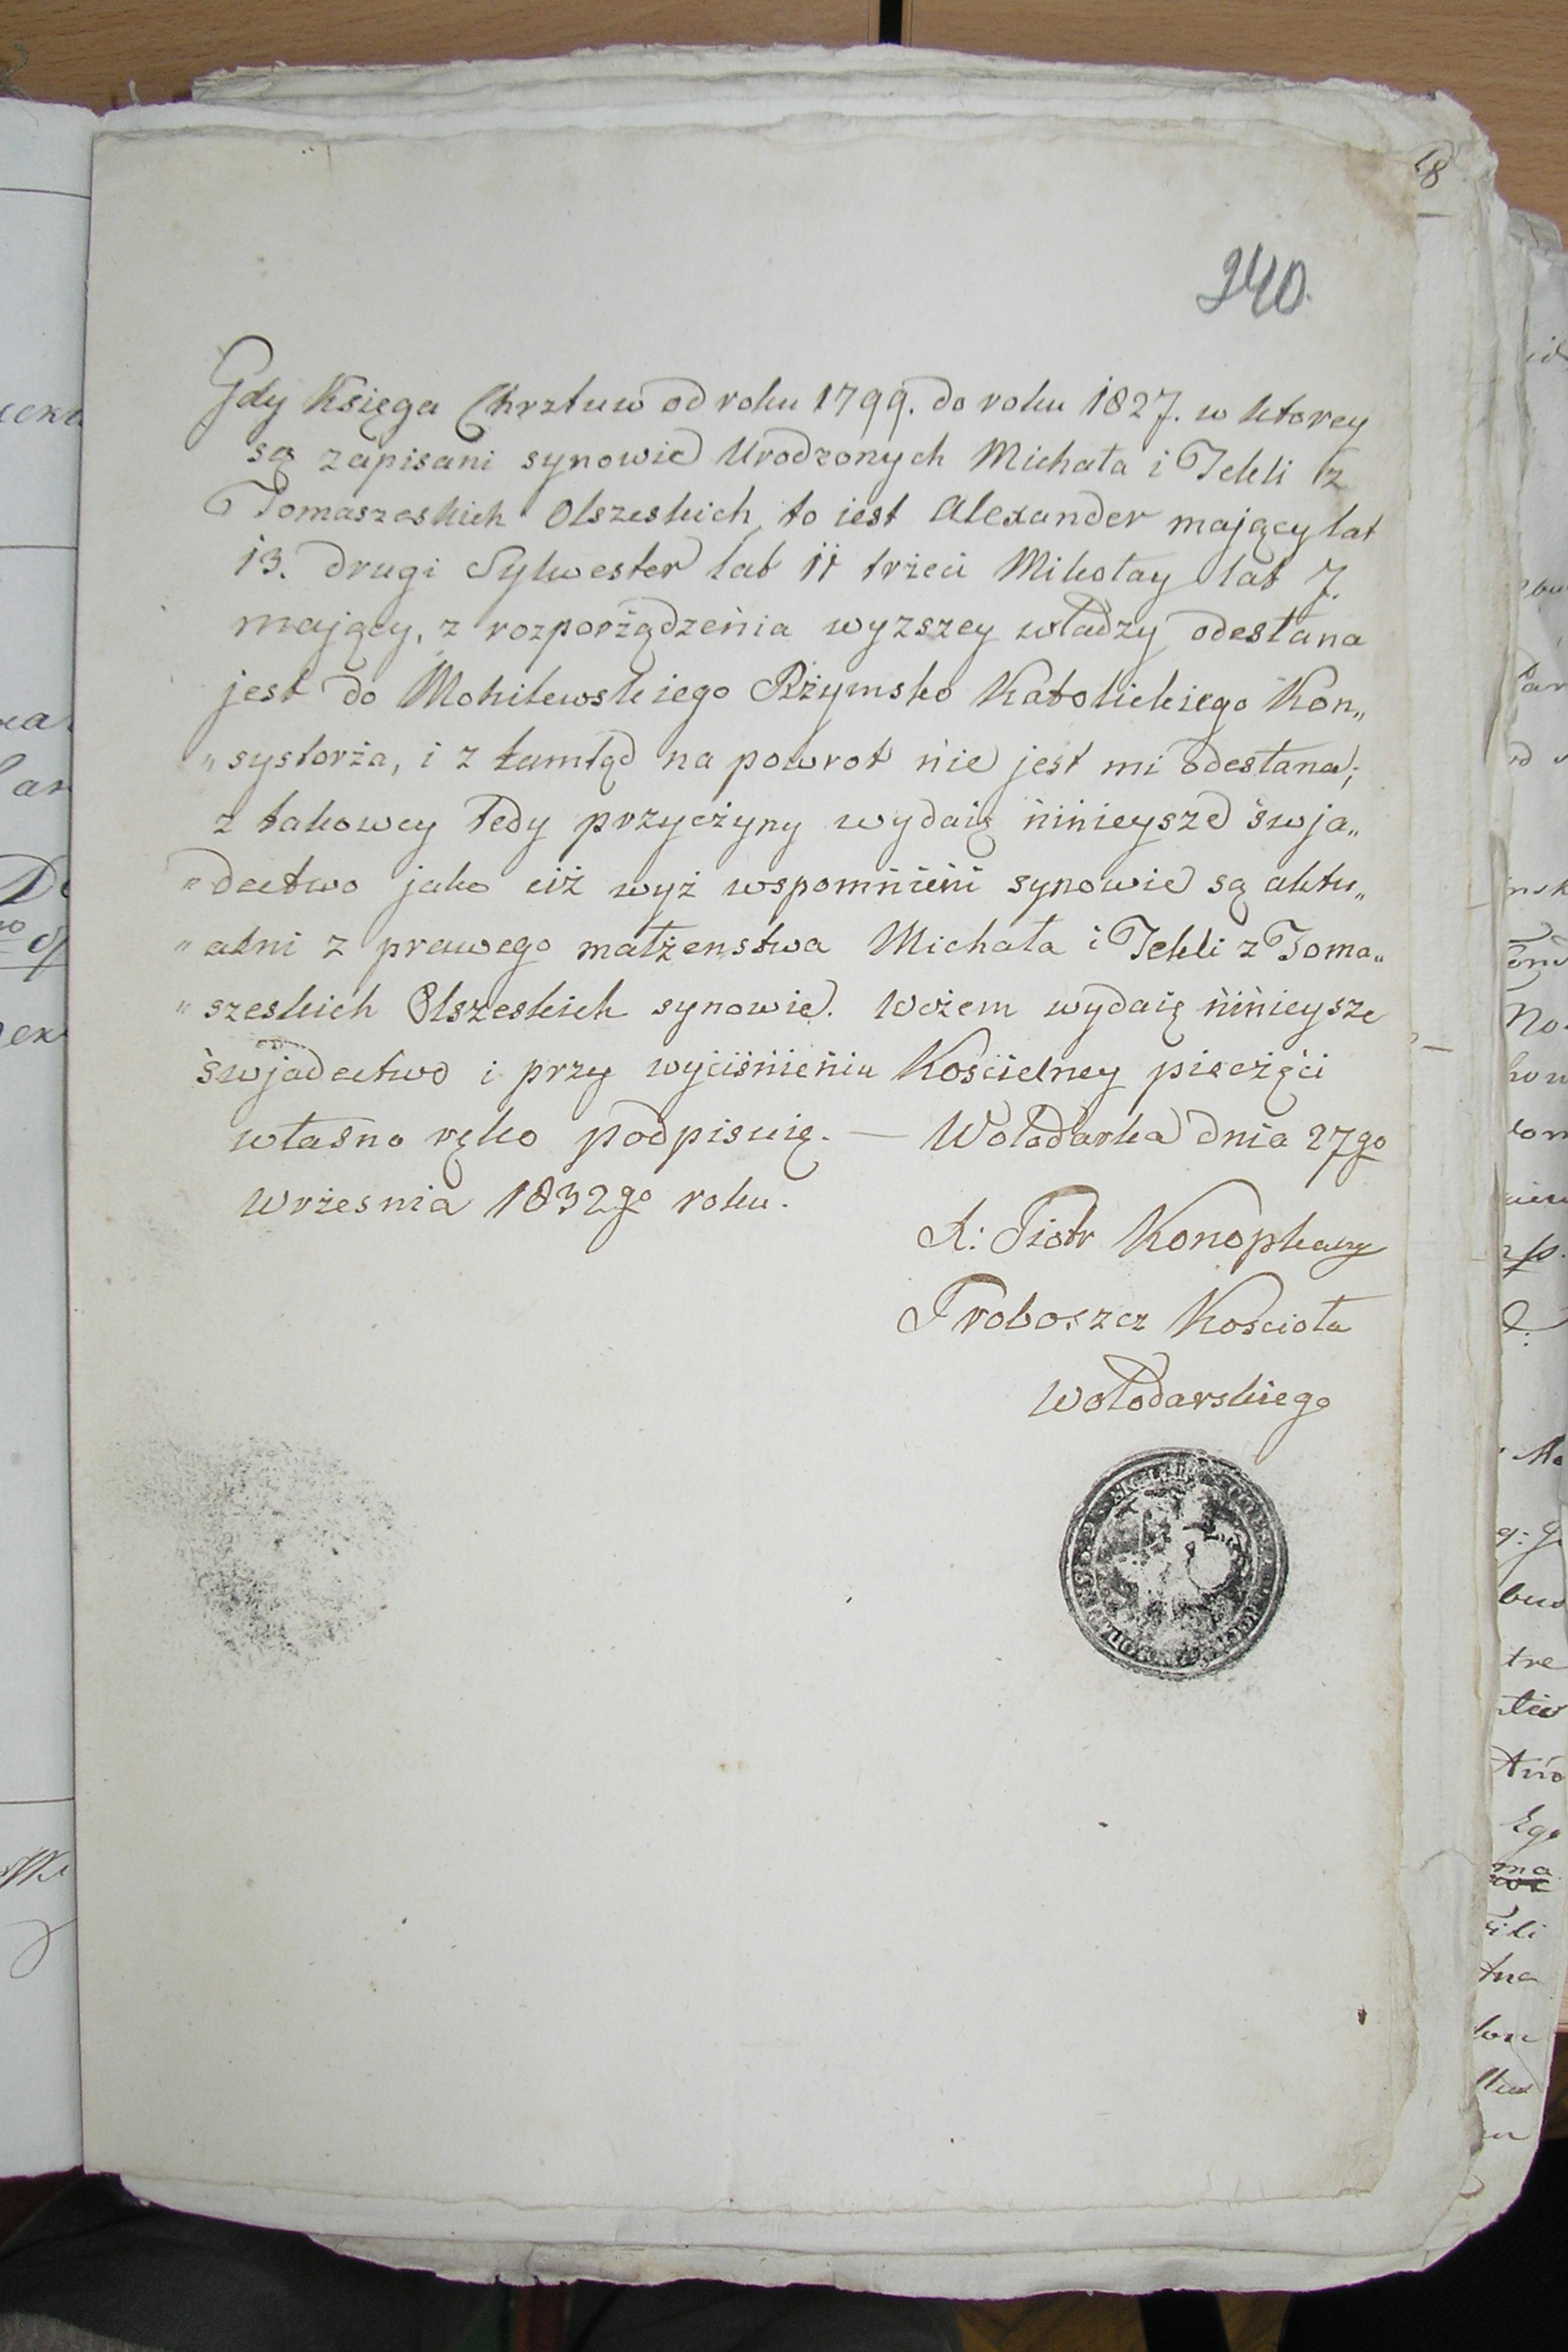 18
240.
Gdy Księga Chrztuw od roku 1799. do roku 1827. w ktorey
są zapisani synowie Urodzonych Michała i Tekli z
Tomaszeskich Olszeskich, to iest Alexander mający lat
13. drugi Sylwester lat 11 trżeci Mikołay lat 7.
mający, z rozporżądzenia wyzszey władzy odesłana
jest do Mohilewskiego Rżymsko Katolickiego Kon„
„systorża, i z tamtąd na powrot nie jest mi odesłana;
z takowey tedy przyczyny wydaię ninieysze swja„
„dectwo jako ciż wyż wspomnieni synowie są aktu„
„alni z prawego małżenstwa Michała i Tekli z Toma„
„szeskich Olszeskich synowie. W czem wydaię ninieysze
swjadectwo i przy wyciśnieniu Kościelney pieczęci
własno ręko podpisuię. — Wołodarka dnia 27go
Wrżesnia 1832go roku.
X: Piotr
Proboszcz Kościoła
Wołodarskiego